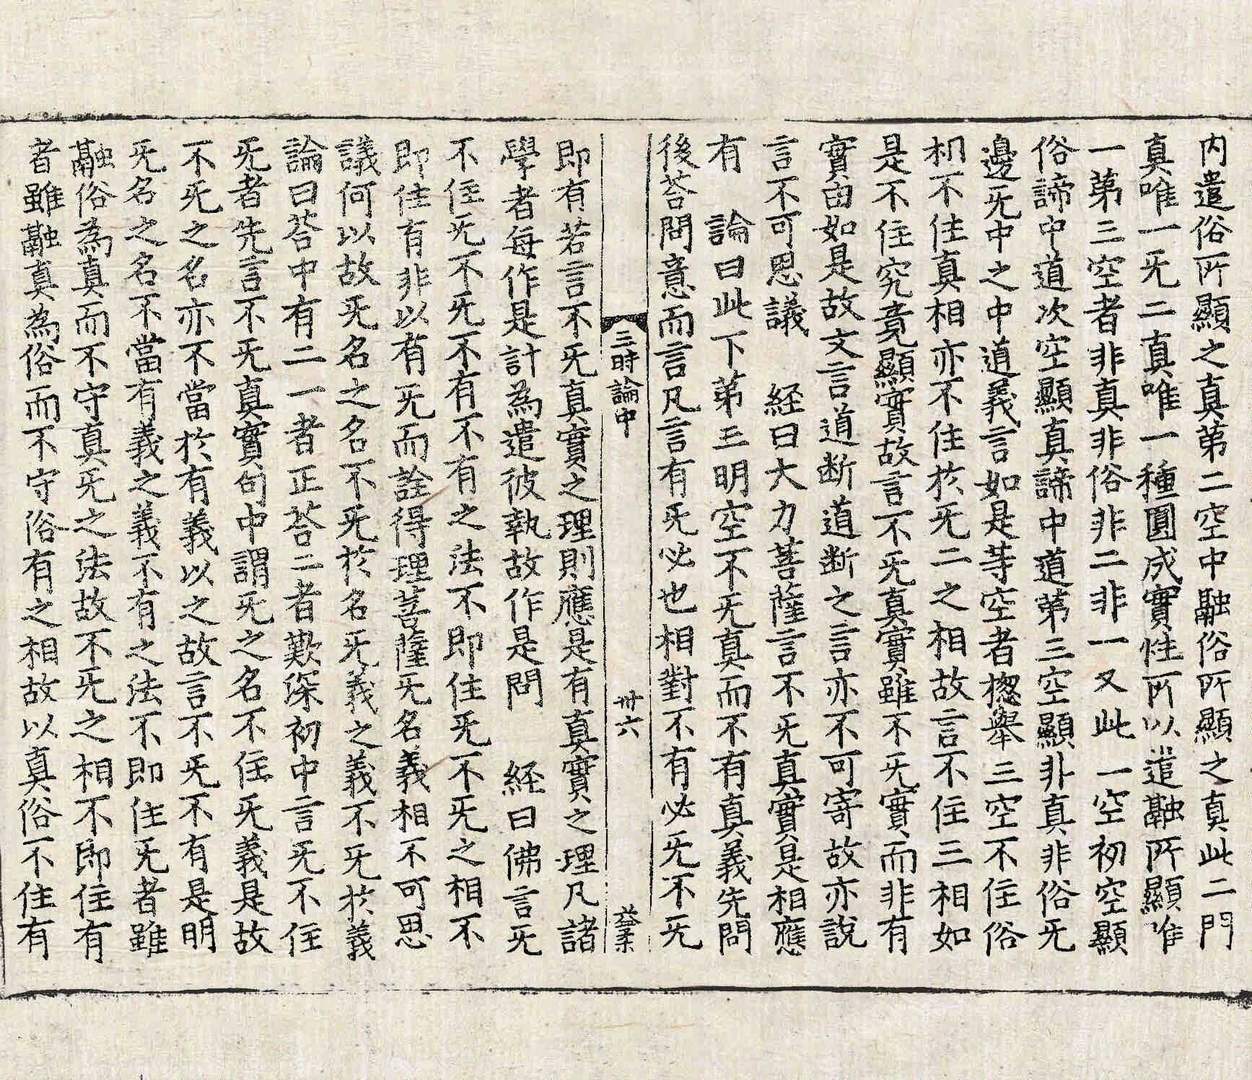 內遣俗所顯之真第二空中融俗所顯之真此二門
真唯一旡二真唯一種圓成實性所以遣融所顯唯
一第三空者非真非俗非二非一又此一空初空顯
俗諦中道次空顯真諦中道第三空顯非真非俗旡
邊旡中之中道義言如是等空者揔舉三空不住俗
相不住真相亦不住於旡二之相故言不住三相如
是不住究竟顯實故言不旡真實雖不旡實而非有
實由如是故文言道断道断之言亦不可寄故亦說
言不可思議 経曰大力菩薩言不旡真實是相應
有 論曰此下第三明空不旡真而不有真義先問
後荅問意而言凡言有旡必也相對不有必旡不旡
三時論中 卅六 益柔
即有若言不旡真實之理則應是有真實之理凡諸
學者每作是計為遣彼執故作是問 経曰佛言旡
不住旡不旡不有不有之法不即住旡不旡之相不
即住有非以有旡而詮得理菩薩旡名義相不可思
議何以故旡名之名不旡於名旡義之義不旡於義
論曰荅中有二一者正荅二者歎深初中言旡不住
旡者先言不旡真實句中謂旡之名不住旡義是故
不旡之名亦不當於有義以之故言不旡不有是明
旡名之名不當有義之義不有之法不即住旡者雖
融俗為真而不守真旡之法故不旡之相不即住有
者雖融真為俗而不守俗有之相故以真俗不住有